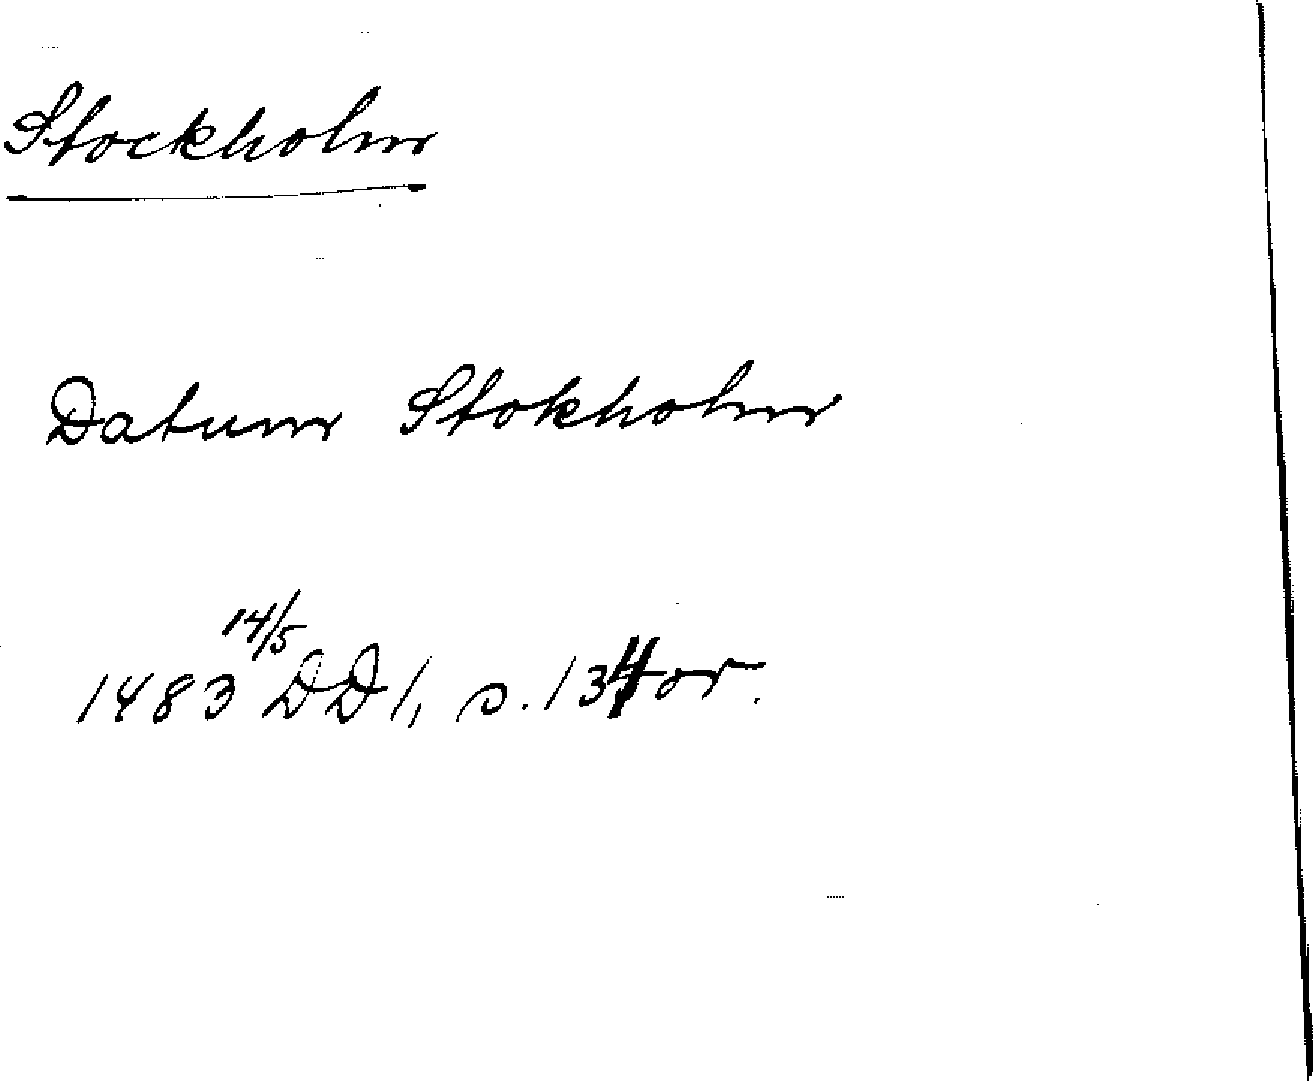 Stockholm
Datum Stokholm
1483 14/5 DD 1, s. 134 or.